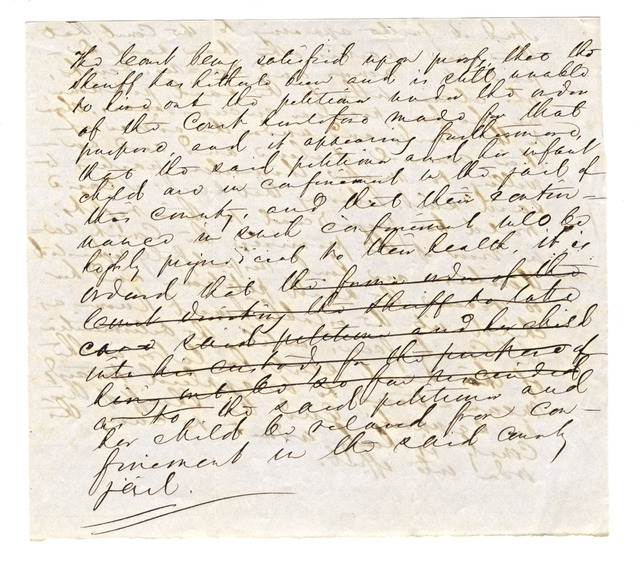 The Court being satisfied upon proof, that the
Sheriff has hitherto been and is still unable
to hire out the petitioner under the order
of the Court heretofore made for that
purpose, and it appearing furthermore,
that the said petitioner and her infant
child are in confinement in the jail of
this county, and that their contin=
uance in such confinement will be
highly prejudicial to their health, it is
ordered that the former order of this
Court directing the Sheriff to take
said petitioner and her child
into his custody for the purpose of
hiring out be so far rescinded
as to the said petitioner and
her child be released from con-
finement in the said county
jail.